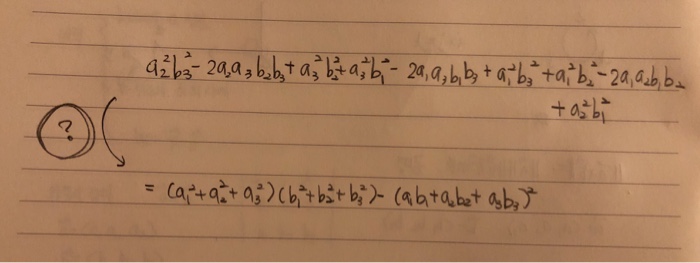 a₂²b₃² - 2a₂a₃b₂b₃ + a₃²b₂² + a₃²b₁² - 2a₁a₃b₁b₃ + a₁²b₃² + a₁²b₂² - 2a₁a₂b₁b₂
+ a₂²b₁²
?
= (a₁² + a₂² + a₃²)(b₁² + b₂² + b₃²) - (a₁b₁ + a₂b₂ + a₃b₃)²